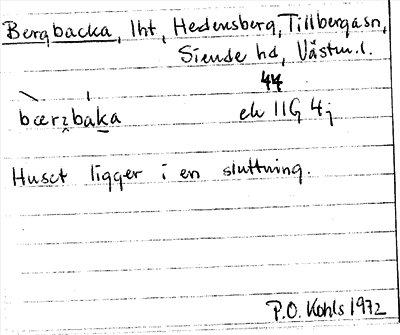 Bergbacka, lht, Hedensberg, Tillbergasn,
Siende hd, Västm.l.
44
bærzbaka ek 11G 4j
Huset ligger i en sluttning.
P.O. Kohls 1972